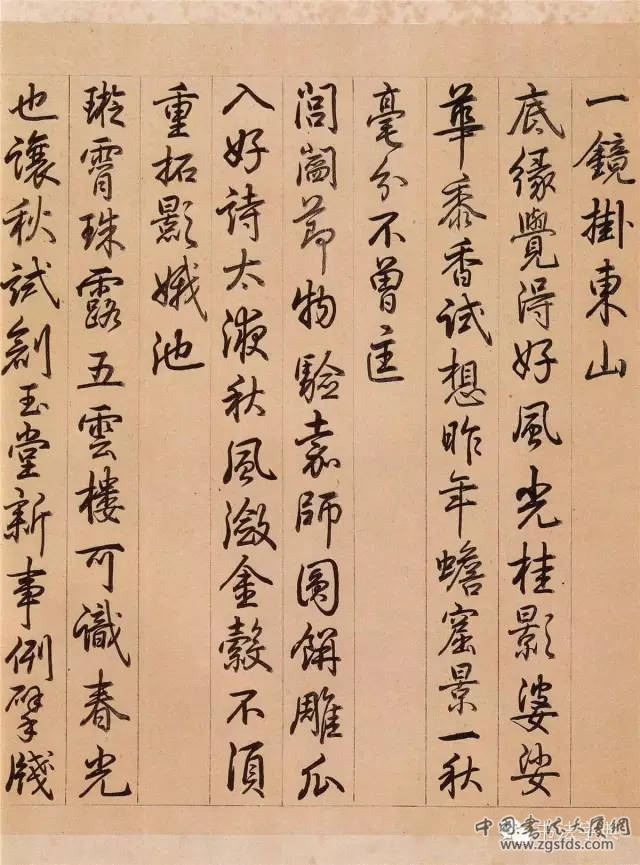 一鏡掛東山
底緣覺得好風光桂影婆娑
華黍香試想昨年蟾窟景一秋
毫分不曾𨒪
閭閻節物驗嘉師圓餅雕瓜
入好詩太液秋風瀲金縠不須
重拓影娥池
璇霄珠露五雲樓可識春光
也讓秋試創玉堂新事例擘牋
中国书法大厦網
www.zgsfds.com